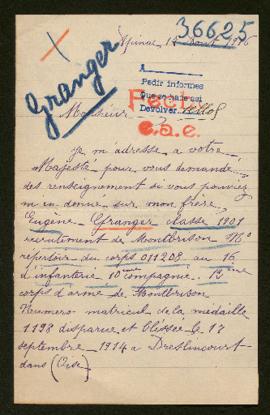 36625
Epinal 15 Aout 1916
Granger
A
Pedir informes
Que se hate así
Devolver
Pech
c.a.e.
Monsieur
je m'adresse a votre
Majesté pour vous demandé
des renseignement si vous pouviez
m'en donné sur mon frere
Eugène Granger classe 1901
recrutement de Montbrison No
repertoir du corps 011208 au 16
d'infanterie 10eme compagne. 13eme
corps d'arme de Montbrison
Numero matricul de la medaille
1198 disparue et blissee le 17
septembre 1914 a Dreslincourt
dans (Oise)